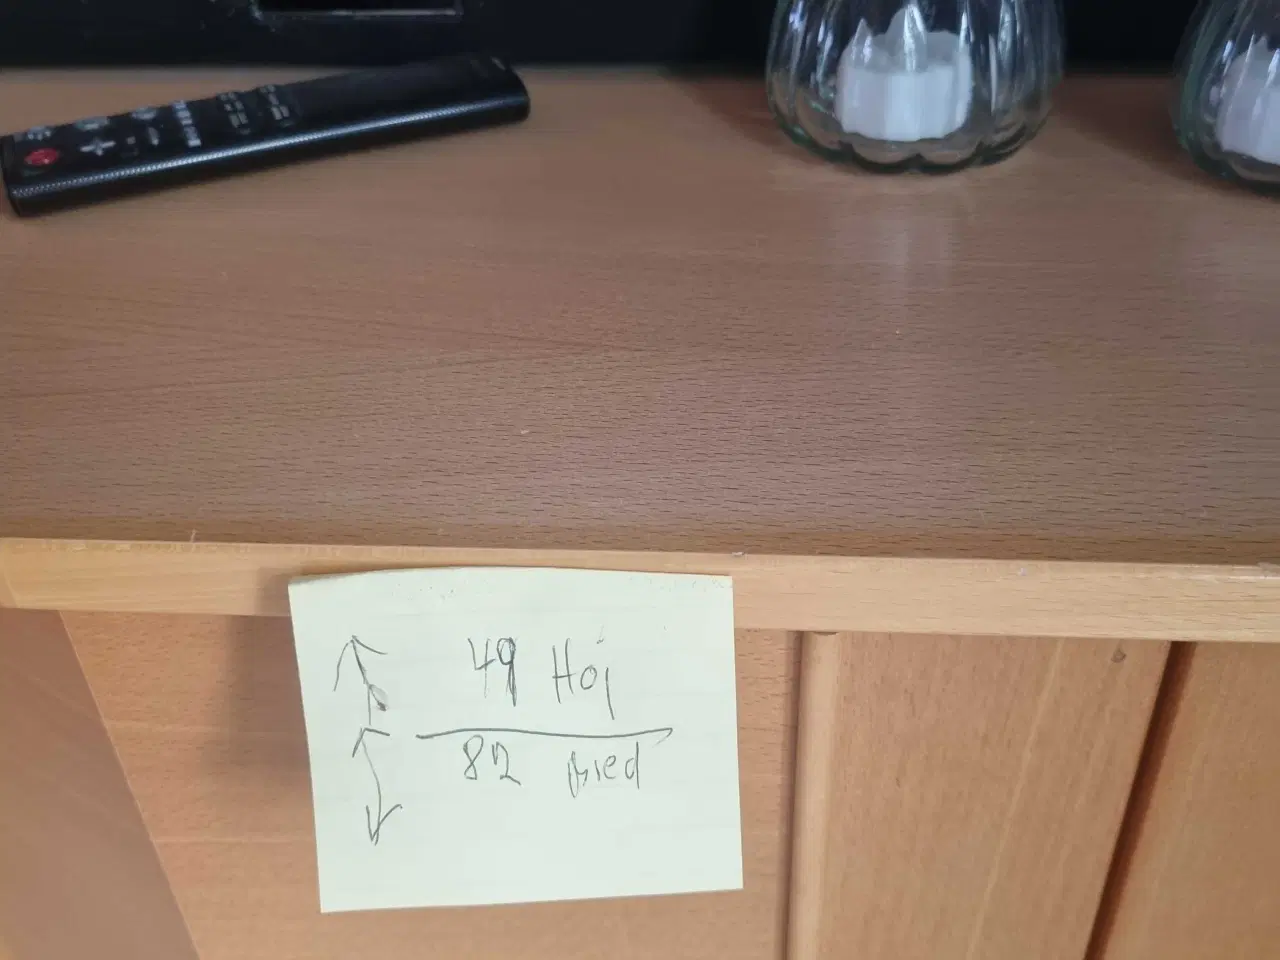 49 Hój
82 bred